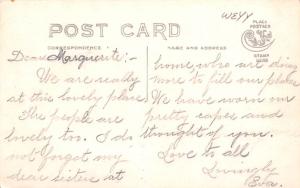 WEYY
POST CARD
PLACE
POSTAGE
STAMP
HERE
CORRESPONDENCE
NAME AND ADDRESS
Dear Marguerite:-
We are really
at this lovely place.
The people are
lovely too. I do
not forget my
dear sister at
home who are doing
more to fill our place
We have worn our
pretty capes and
thought of you.
Love to all
Lovingly
Eva.